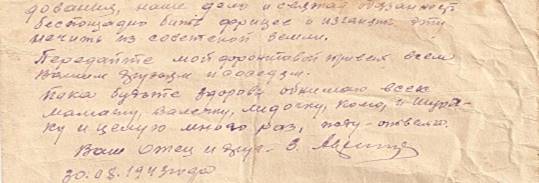 дования, наше дело и святая обязанность
беспощадно бить фрицев и изгнать эту
нечить из советской земли.
Передайте мой фронтовой привет всем
Вашим друзьям и соседям.
Пока будьте здоровы обнимаю всех
Мамашу, Валечку, Лидочку, Кому, и Шура-
ку и целую много раз, жду-ответа.
Ваш Отец и друг- З.
30.08.1943 года